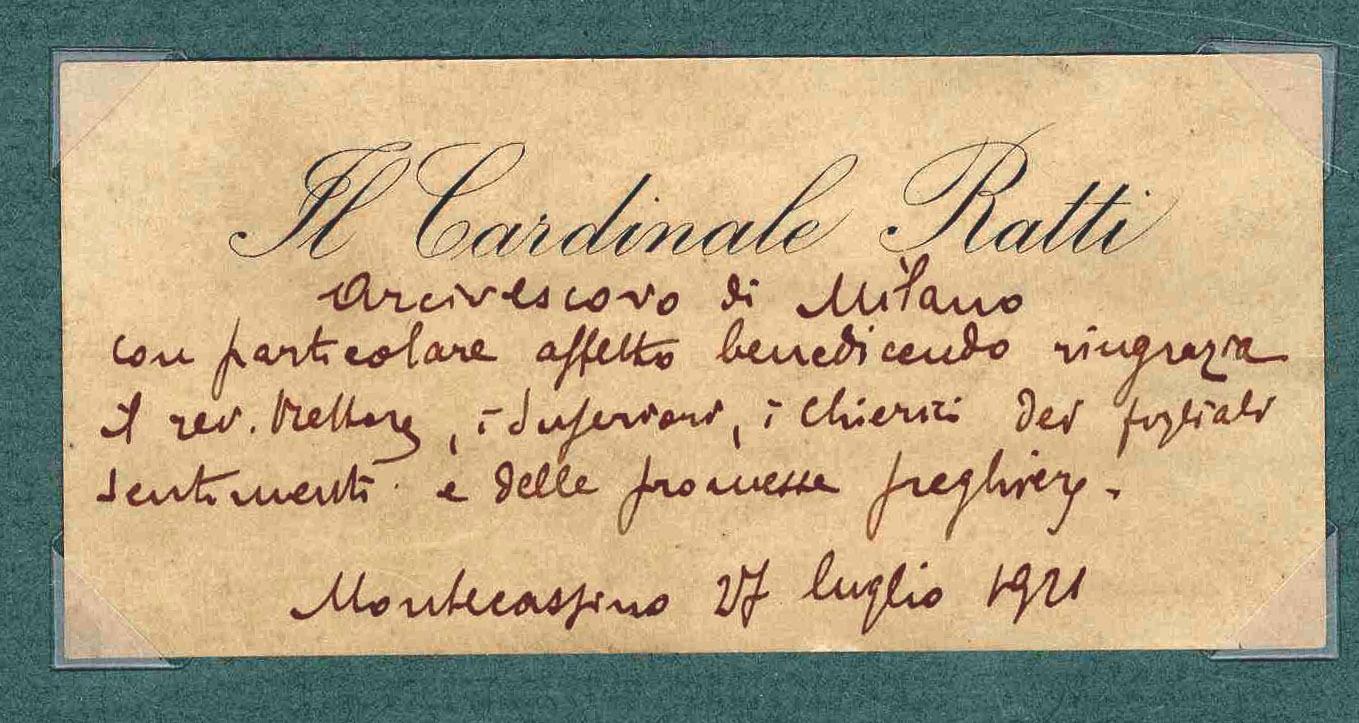 Il Cardinale Ratti
Arcivescovo di Milano
con particolare affetto benedicendo ringrazia
il rev. Rettore, i Superiori, i Chierici dei figliali
sentimenti e delle promesse preghiere.
Montecassino 27 luglio 1921